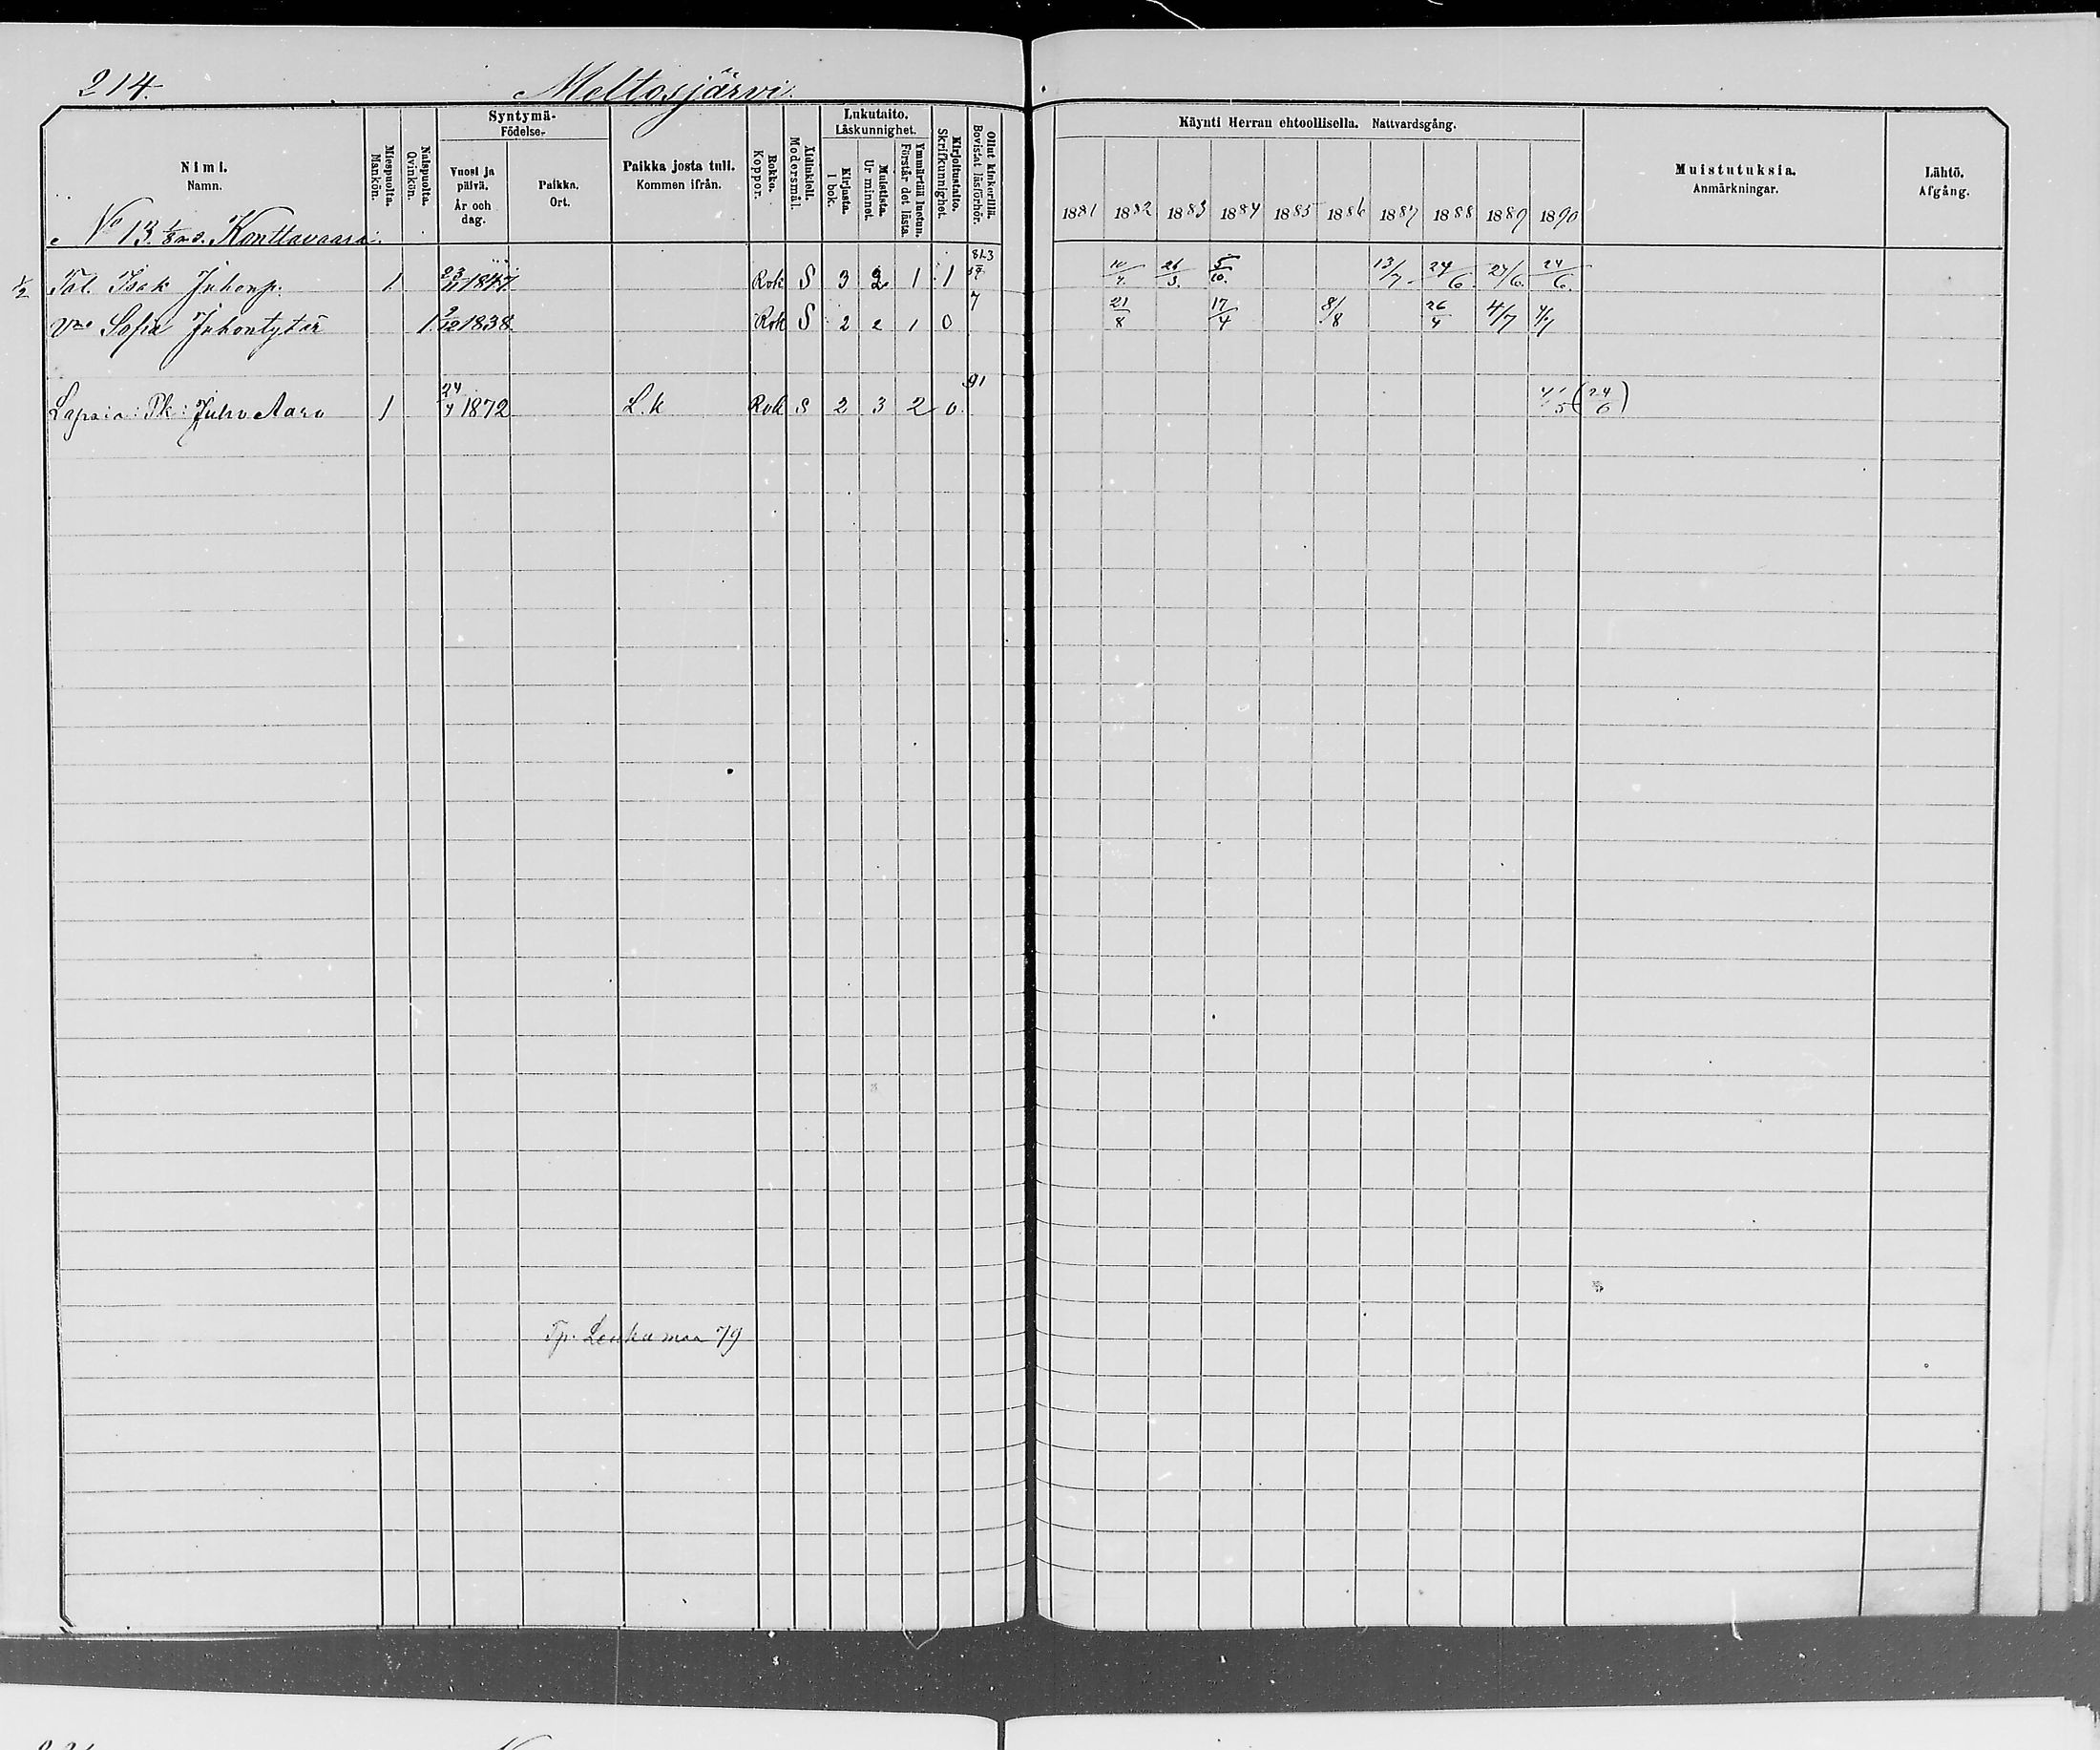 214.
Meltosjärvi.
Nimi.
Namn.
Miespuolta.
Mankön.
Naispuolta.
Qvinkön.
Syntymä-
Födelse-
Vuosi ja
päivä.
År och
dag.
Paikka.
Ort.
Paikka josta tuli.
Kommen ifrån.
Rokko.
Koppor.
Äidinkieli.
Modersmål.
Lukutaito.
Läskunnighet.
Kirjasta.
I bok.
Muistista.
Ur minnet.
Ymmärtää luetun.
Förstår det lästa.
Kirjoitustaito.
Skrifkunnighet.
Ollut kinkerillä.
Bevistat läsförhör.
Käynti Herran ehtoollisella. Nattvardsgång.
1881 1882 1883 1884 1885 1886 1887 1888 1889 1890
Muistutuksia.
Anmärkningar.
Lähtö.
Afgång.
No 13. Konttavaara.
81.3
1/2 Tal. Isak Juhonp. 1 23/11 1847. Rok S 3 2 1 1 26/3. 5/10. 13/7. 24/6. 24/6. 24/6.
7
Vmo Sofia Juhontytär 1 1838. Rok S 2 2 1 0 21/8 17/4 8/8 26/4 4/7 4/7
91
Lapsia: Pk: Juho Aaro 1 24/4 1872 L.k Rok S 2 3 2 0. (24/6)
Tp. Leukumaa 79